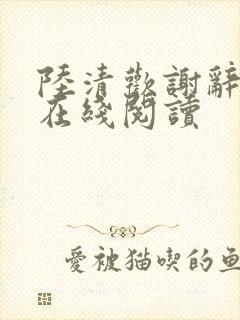 陸清歡謝辭
在綫閱讀
愛被猫喫的魚